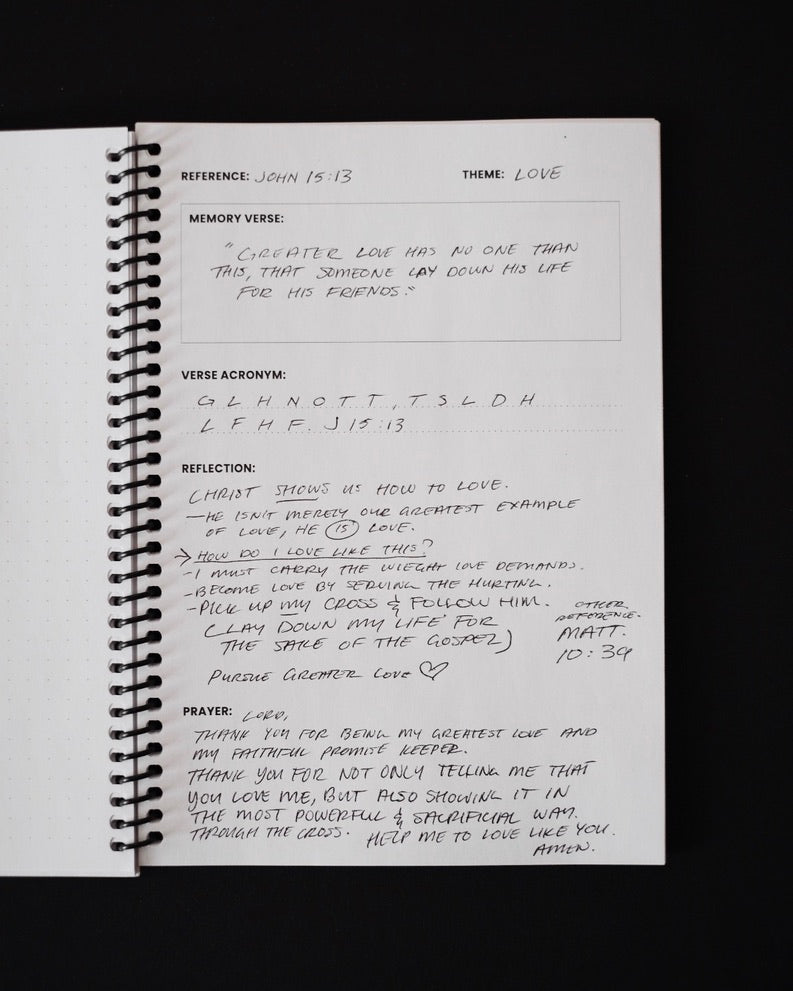 REFERENCE: JOHN 15:13 THEME: LOVE
MEMORY VERSE:
"GREATER LOVE HAS NO ONE THAN
THIS, THAT SOMEONE LAY DOWN HIS LIFE
FOR HIS FRIENDS."
VERSE ACRONYM:
G L H N O T T, T S L D H
L F H F. J 15:13
REFLECTION:
CHRIST SHOWS US HOW TO LOVE.
—HE ISN'T MERELY OUR GREATEST EXAMPLE
OF LOVE, HE IS LOVE.
→ HOW DO I LOVE LIKE THIS?
-I MUST CARRY THE WIEGHT LOVE DEMANDS.
-BECOME LOVE BY SERVING THE HURTING.
-PICK UP MY CROSS & FOLLOW HIM.
(LAY DOWN MY LIFE FOR
THE SAKE OF THE GOSPEL)
OTHER
REFERENCE-
MATT.
10:39
PURSUE GREATER LOVE ♡
PRAYER: LORD,
THANK YOU FOR BEING MY GREATEST LOVE AND
MY FAITHFUL PROMISE KEEPER.
THANK YOU FOR NOT ONLY TELLING ME THAT
YOU LOVE ME, BUT ALSO SHOWING IT IN
THE MOST POWERFUL & SACRIFICIAL WAY.
THROUGH THE CROSS. HELP ME TO LOVE LIKE YOU.
AMEN.